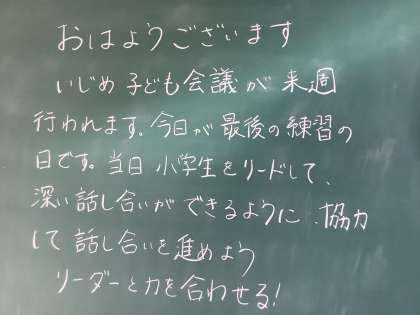 おはようございます
いじめ子ども会議が来週
行われます。今日が最後の練習の
日です。当日小学生をリードして、
深い話し合いができるように、協力
して話し合いを進めよう
リーダーと力を合わせる!